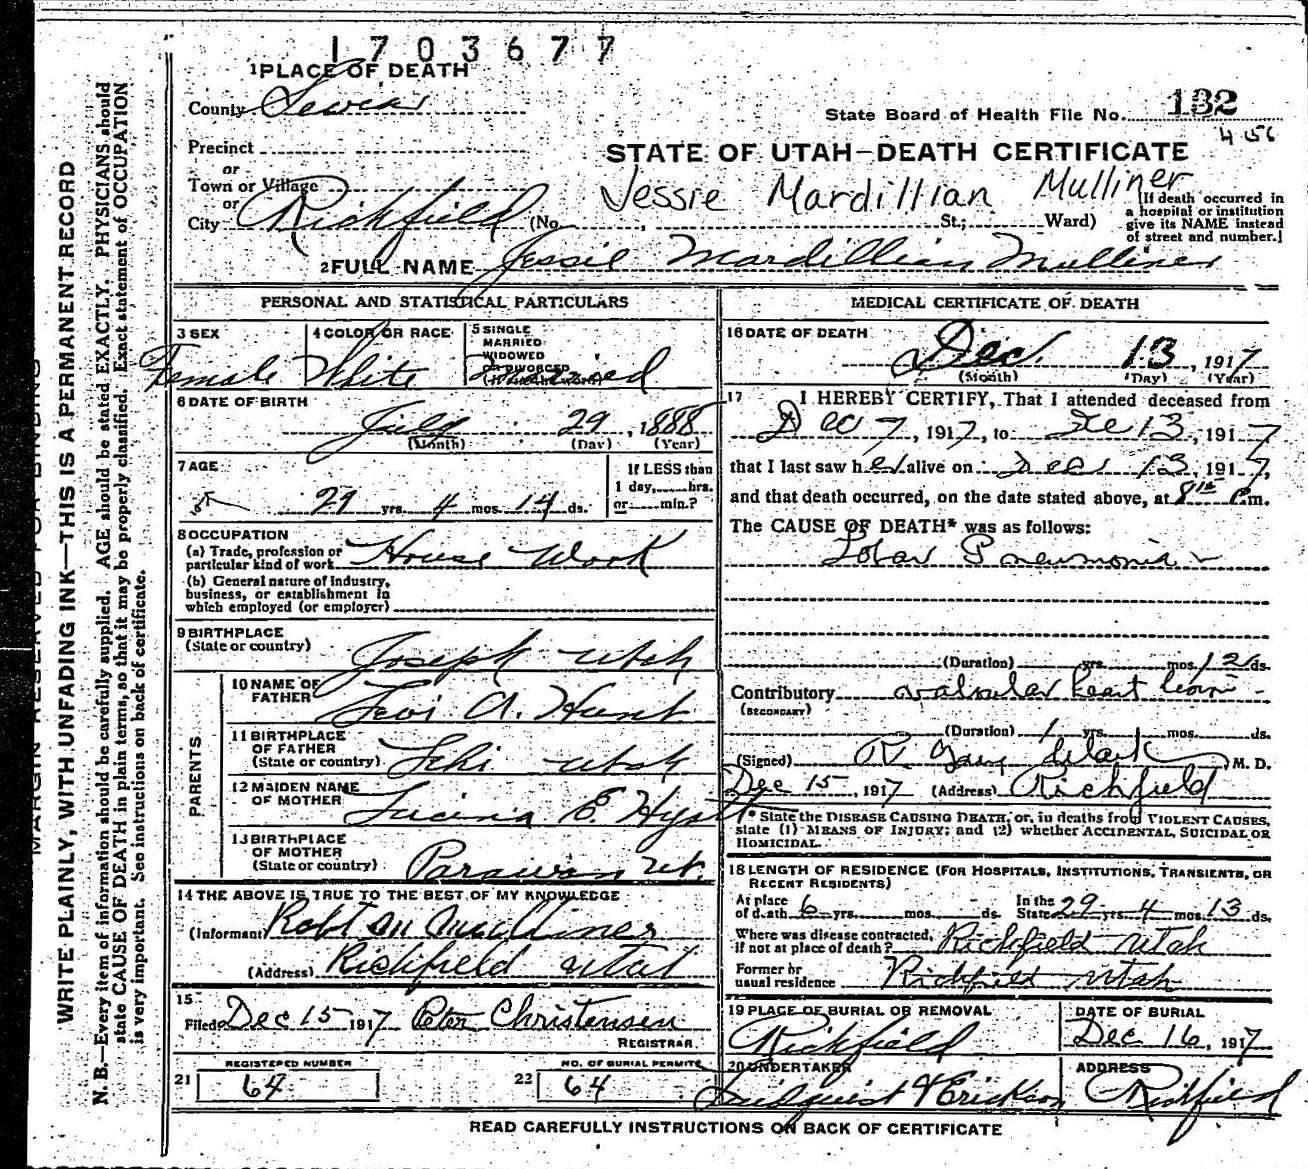 1703677
1 PLACE OF DEATH
County Sevier
State Board of Health File No. 132
456
Precinct
STATE OF UTAH—DEATH CERTIFICATE
or
Town or Village
Jessie Mardillian Mulliner
or
City Richfield (No. , St.; Ward) [If death occurred in a hospital or institution give its NAME instead of street and number.]
2 FULL NAME Jessie Mardillian Mulliner
PERSONAL AND STATISTICAL PARTICULARS
3 SEX Female
4 COLOR OR RACE White
5 SINGLE MARRIED WIDOWED OR DIVORCED Married
6 DATE OF BIRTH
July 29, 1888
(Month) (Day) (Year)
7 AGE
29 yrs. 4 mos. 14 ds.
If LESS than 1 day, hrs. or min.?
8 OCCUPATION
(a) Trade, profession or particular kind of work House Work
(b) General nature of industry, business, or establishment in which employed (or employer)
9 BIRTHPLACE
(State or country) Joseph Utah
PARENTS
10 NAME OF FATHER Levi A. Hunt
11 BIRTHPLACE OF FATHER
(State or country) Lehi Utah
12 MAIDEN NAME OF MOTHER E.
13 BIRTHPLACE OF MOTHER
(State or country) Parawan Ut.
14 THE ABOVE IS TRUE TO THE BEST OF MY KNOWLEDGE
(Informant) Robt Mulliner
(Address) Richfield Utah
15
Filed Dec 15 1917 Peter Christensen
REGISTRAR
REGISTERED NUMBER
21 64
NO. OF BURIAL PERMIT
22 64
MEDICAL CERTIFICATE OF DEATH
16 DATE OF DEATH
Dec. 13, 1917
(Month) (Day) (Year)
17 I HEREBY CERTIFY, That I attended deceased from
Dec 7, 1917, to Dec 13, 1917
that I last saw her alive on Dec 13, 1917,
and that death occurred, on the date stated above, at 8 15 P m.
The CAUSE OF DEATH* was as follows:
Lobar Pneumonia
(Duration) yrs. mos. 12 ds.
Contributory valvular heart
(SECONDARY)
(Duration) 1 yrs. mos. ds.
(Signed) R. Clark M. D.
Dec 15, 1917 (Address) Richfield
* State the DISEASE CAUSING DEATH, or, in deaths from VIOLENT CAUSES,
state (1) MEANS OF INJURY; and (2) whether ACCIDENTAL, SUICIDAL OR
HOMICIDAL.
18 LENGTH OF RESIDENCE (FOR HOSPITALS, INSTITUTIONS, TRANSIENTS, OR
RECENT RESIDENTS)
At place of death 6 yrs. mos. ds. In the State 29 yrs. 4 mos. 13 ds.
Where was disease contracted, if not at place of death? Richfield Utah
Former or usual residence Richfield Utah
19 PLACE OF BURIAL OR REMOVAL
Richfield
DATE OF BURIAL
Dec 16, 1917
20 UNDERTAKER
& Erickson
ADDRESS
Richfield
READ CAREFULLY INSTRUCTIONS ON BACK OF CERTIFICATE
MARGIN RESERVED FOR BINDING
WRITE PLAINLY, WITH UNFADING INK—THIS IS A PERMANENT RECORD
N. B.—Every item of information should be carefully supplied. AGE should be stated EXACTLY. PHYSICIANS should
state CAUSE OF DEATH in plain terms, so that it may be properly classified. Exact statement of OCCUPATION
is very important. See instructions on back of certificate.